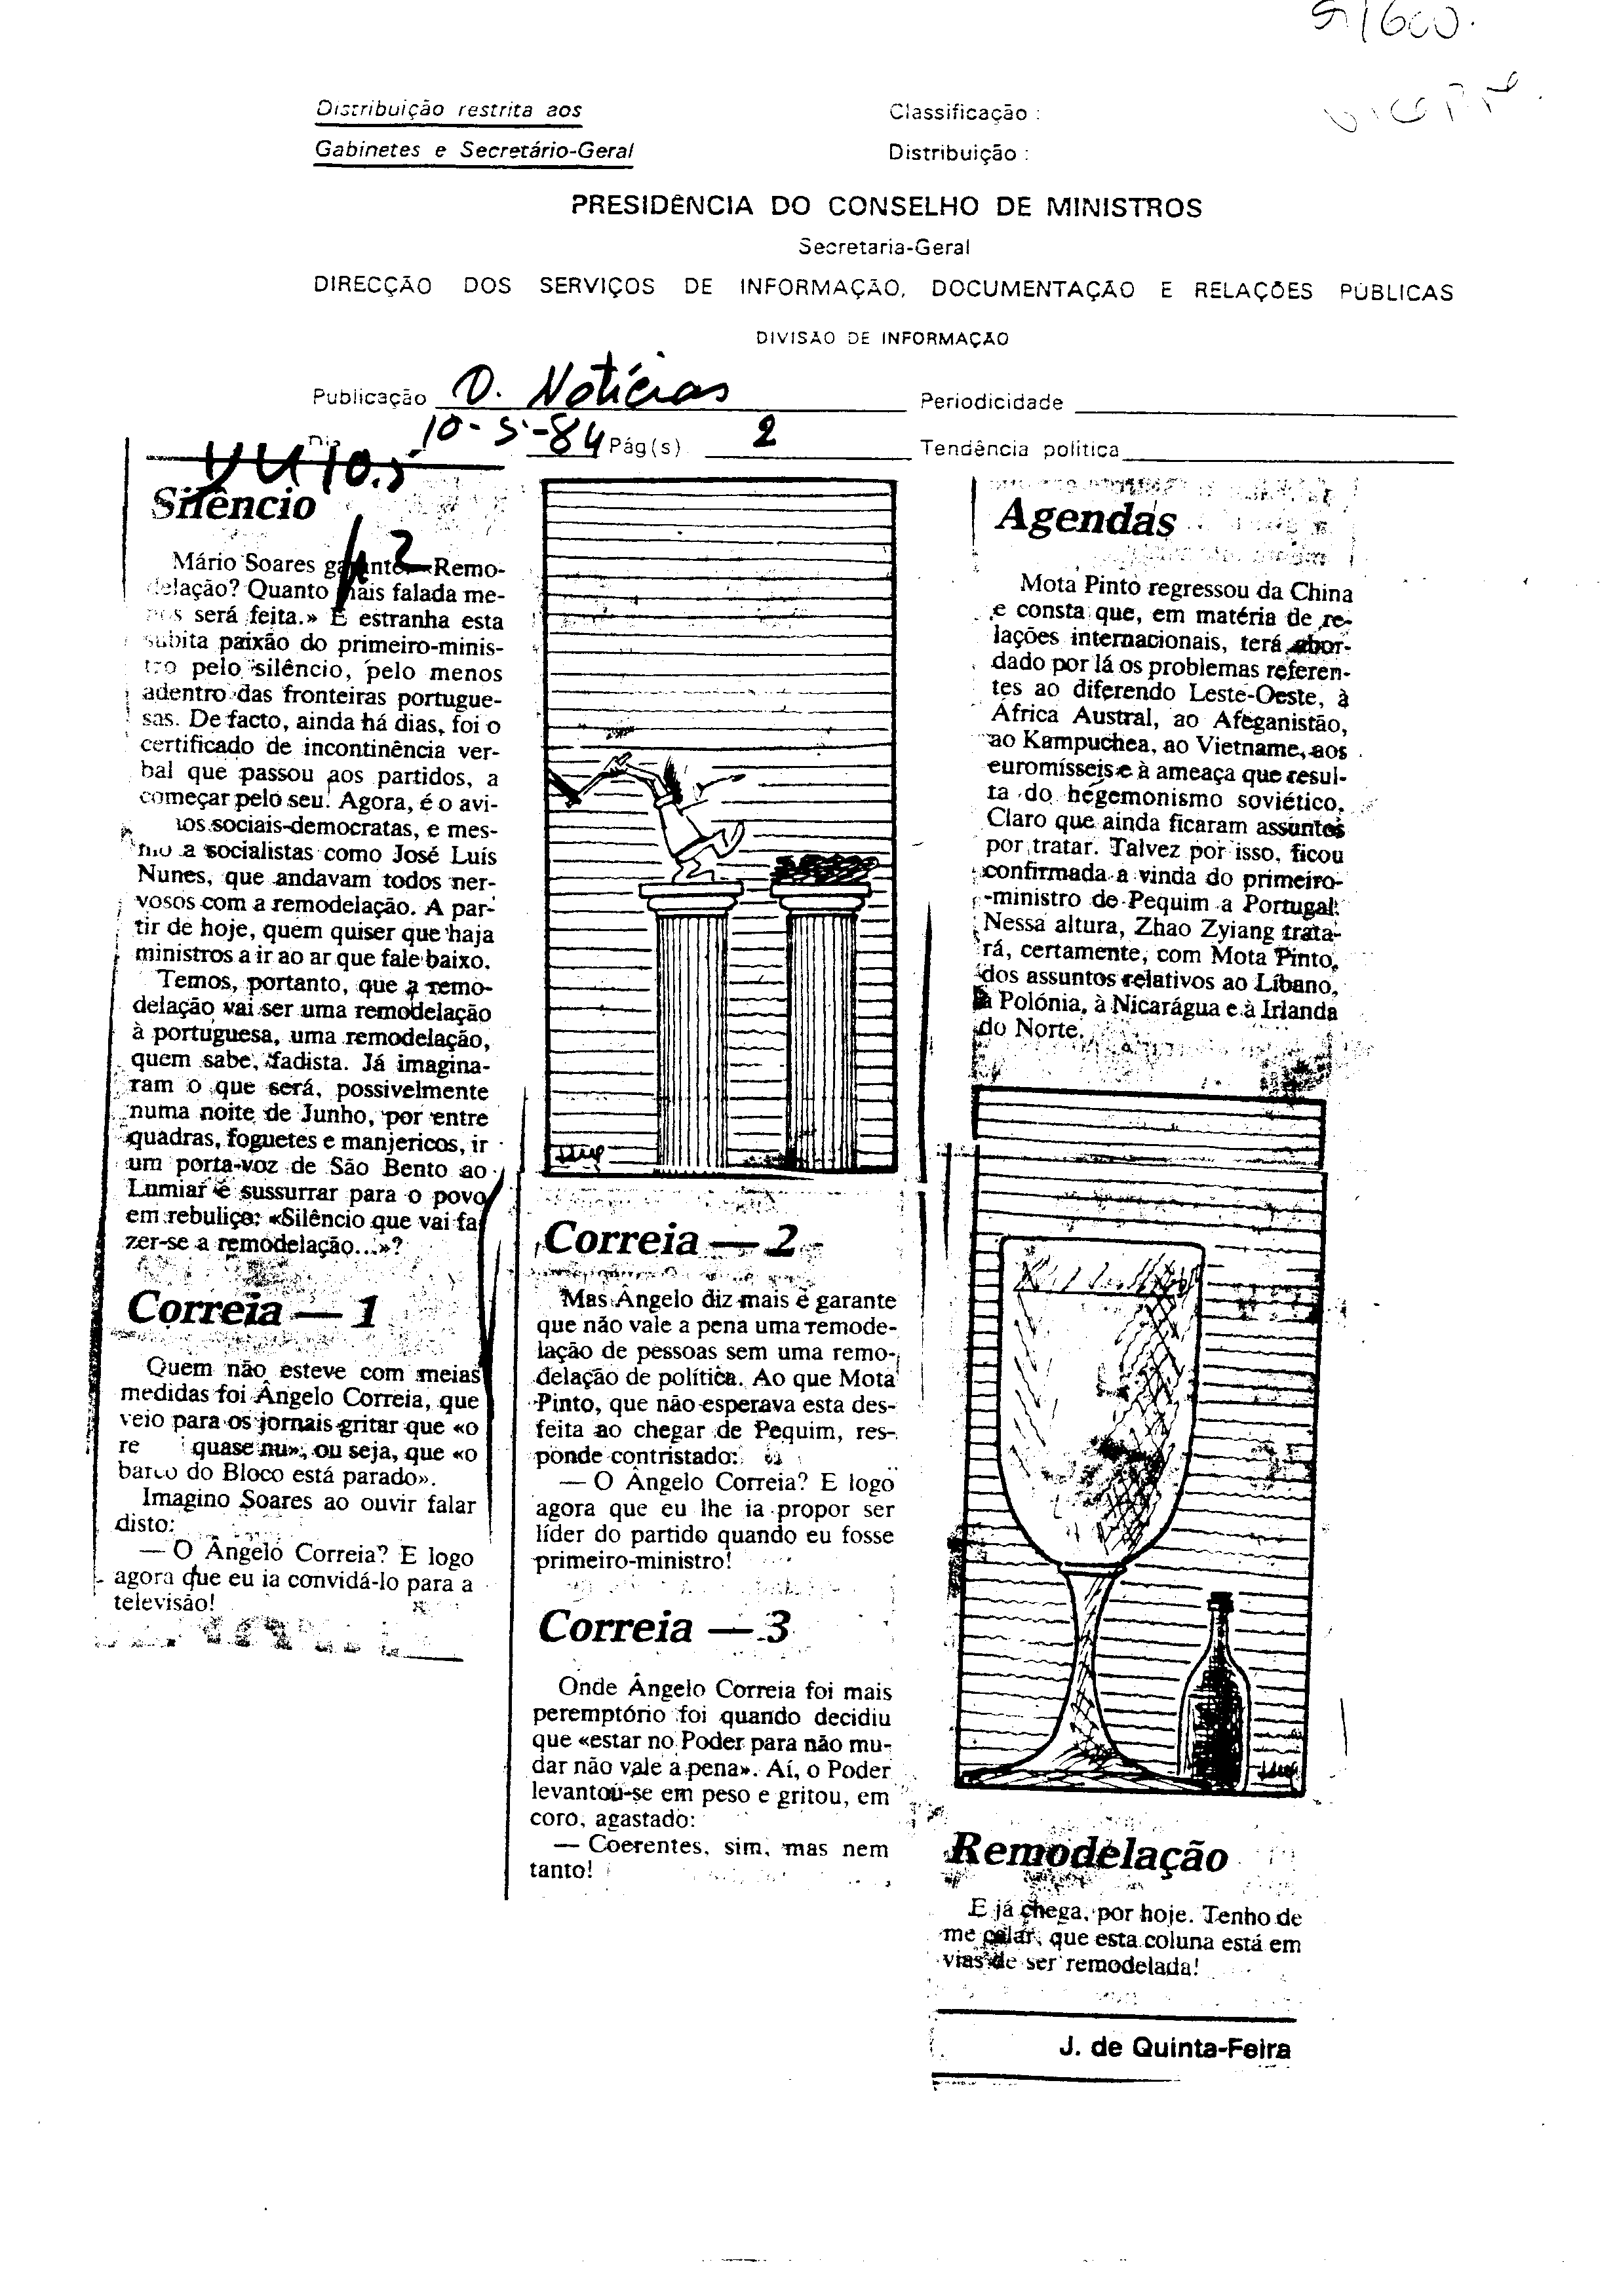 Distribuição restrita aos
Gabinetes e Secretário-Geral
Classificação :
Distribuição :
PRESIDÊNCIA DO CONSELHO DE MINISTROS
Secretaria-Geral
DIRECÇÃO DOS SERVIÇOS DE INFORMAÇÃO, DOCUMENTAÇÃO E RELAÇÕES PÚBLICAS
DIVISÃO DE INFORMAÇÃO
Publicação D. Notícias Periodicidade
Dia 10-5-84 Pág(s). 2 Tendência política
Silêncio
Mário Soares garante: «Remo-
delação? Quanto mais falada me-
nos será feita.» É estranha esta
súbita paixão do primeiro-minis-
tro pelo silêncio, pelo menos
adentro das fronteiras portugue-
sas. De facto, ainda há dias, foi o
certificado de incontinência ver-
bal que passou aos partidos, a
começar pelo seu. Agora, é o avi-
sociais-democratas, e mes-
mo a socialistas como José Luís
Nunes, que andavam todos ner-
vosos com a remodelação. A par-
tir de hoje, quem quiser que haja
ministros a ir ao ar que fale baixo.
Temos, portanto, que a remo-
delação vai ser uma remodelação
à portuguesa, uma remodelação,
quem sabe, fadista. Já imagina-
ram o que será, possivelmente
numa noite de Junho, por entre
quadras, foguetes e manjericos, ir
um porta-voz de São Bento ao
Lumiar e sussurrar para o povo
em rebuliço: «Silêncio que vai fa
zer-se a remodelação...»?
Correia — 1
Quem não esteve com meias
medidas foi Ângelo Correia, que
veio para os jornais gritar que «o
re quase nu», ou seja, que «o
barco do Bloco está parado».
Imagino Soares ao ouvir falar
disto:
— O Ângelo Correia? E logo
agora que eu ia convidá-lo para a
televisão!
Correia — 2
Mas Ângelo diz mais e garante
que não vale a pena uma remode-
lação de pessoas sem uma remo-
delação de política. Ao que Mota
Pinto, que não esperava esta des-
feita ao chegar de Pequim, res-
ponde contristado:
— O Ângelo Correia? E logo
agora que eu lhe ia propor ser
líder do partido quando eu fosse
primeiro-ministro!
Correia — 3
Onde Ângelo Correia foi mais
peremptório foi quando decidiu
que «estar no Poder para não mu-
dar não vale a pena». Aí, o Poder
levantou-se em peso e gritou, em
coro, agastado:
— Coerentes, sim, mas nem
tanto!
Agendas
Mota Pinto regressou da China
e consta que, em matéria de re-
lações internacionais, terá abor-
dado por lá os problemas referen-
tes ao diferendo Leste-Oeste, à
África Austral, ao Afeganistão,
ao Kampuchea, ao Vietname, aos
euromísseis e à ameaça que resul-
ta do hegemonismo soviético.
Claro que ainda ficaram assuntos
por tratar. Talvez por isso, ficou
confirmada a vinda do primeiro-
-ministro de Pequim a Portugal.
Nessa altura, Zhao Zyiang trata-
rá, certamente, com Mota Pinto,
dos assuntos relativos ao Líbano,
à Polónia, à Nicarágua e à Irlanda
do Norte.
Remodelação
E já chega, por hoje. Tenho de
me calar, que esta coluna está em
vias de ser remodelada!
J. de Quinta-Feira